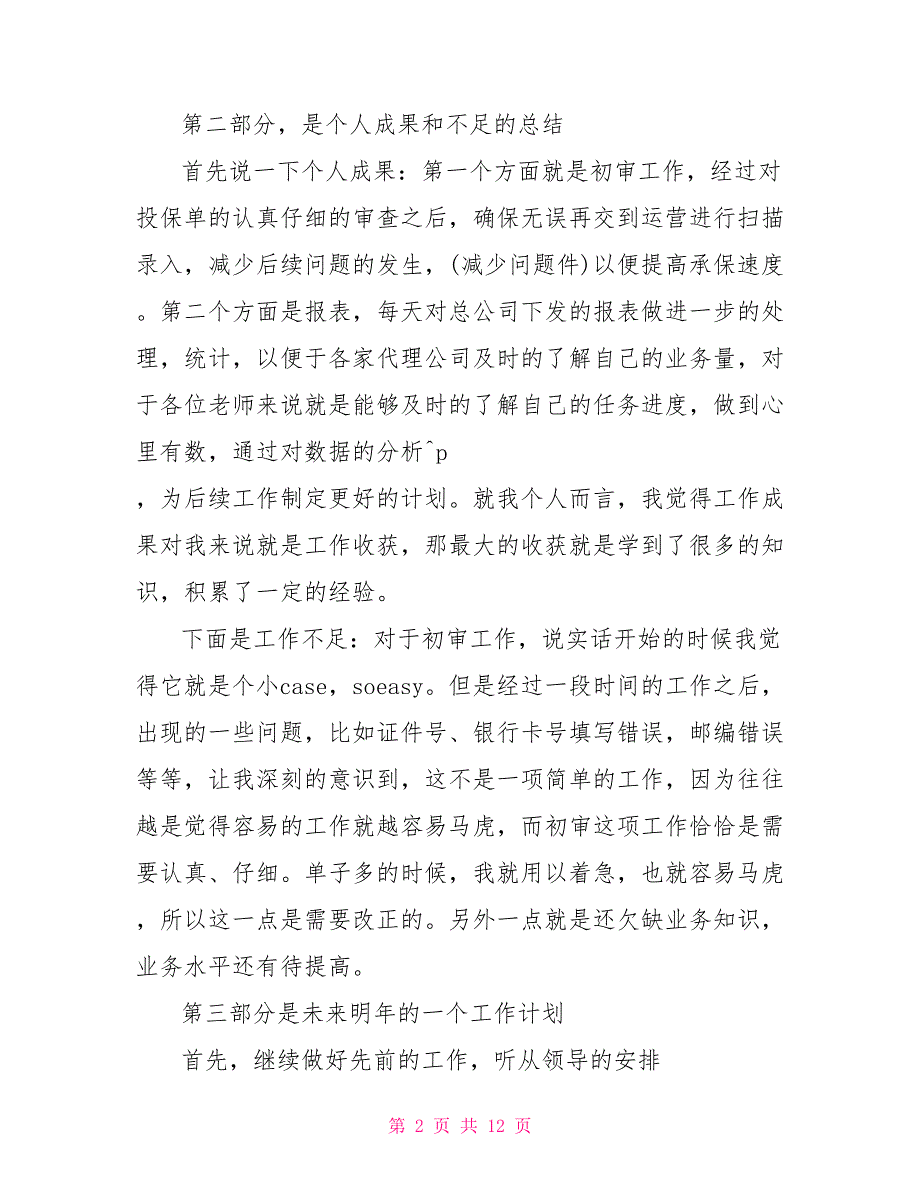 第二部分，是个人成果和不足的总结
首先说一下个人成果：第一个方面就是初审工作，经过对
投保单的认真仔细的审查之后，确保无误再交到运营进行扫描
录入，减少后续问题的发生，(减少问题件)以便提高承保速度
。第二个方面是报表，每天对总公司下发的报表做进一步的处
理，统计，以便于各家代理公司及时的了解自己的业务量，对
于各位老师来说就是能够及时的了解自己的任务进度，做到心
里有数，通过对数据的分析^p
，为后续工作制定更好的计划。就我个人而言，我觉得工作成
果对我来说就是工作收获，那最大的收获就是学到了很多的知
识，积累了一定的经验。
下面是工作不足：对于初审工作，说实话开始的时候我觉
得它就是个小case，soeasy。但是经过一段时间的工作之后，
出现的一些问题，比如证件号、银行卡号填写错误，邮编错误
等等，让我深刻的意识到，这不是一项简单的工作，因为往往
越是觉得容易的工作就越容易马虎，而初审这项工作恰恰是需
要认真、仔细。单子多的时候，我就用以着急，也就容易马虎
，所以这一点是需要改正的。另外一点就是还欠缺业务知识，
业务水平还有待提高。
第三部分是未来明年的一个工作计划
首先，继续做好先前的工作，听从领导的安排
第 2 页 共 12 页